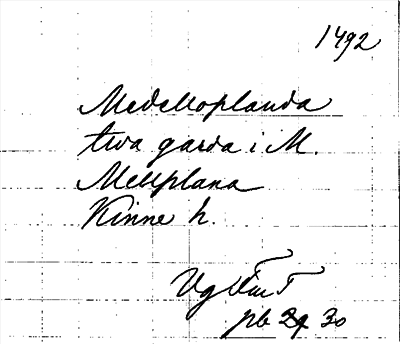 1492
Medelloplanda
twa garda i M.
Mellplana
Kinne h.
Vg
pb 29 30